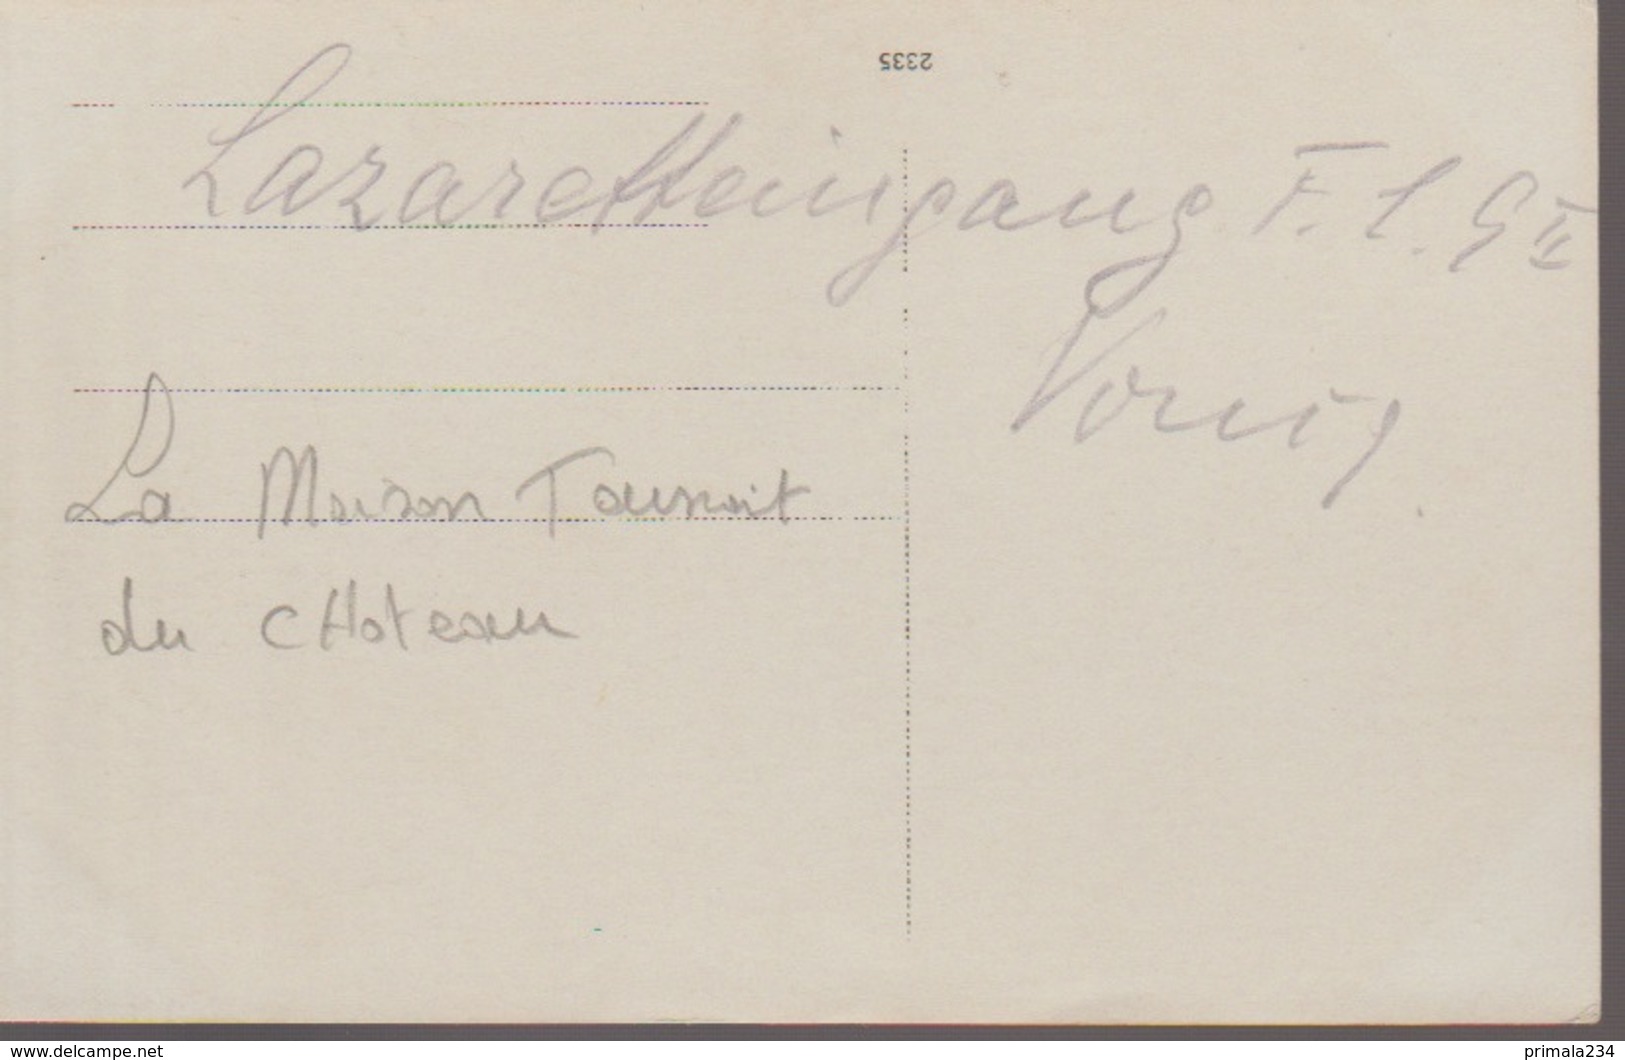 2335
Lazaretteingang F. L. G II
La Maison Tausnait
du cHateau
www.delcampe.net
primala234